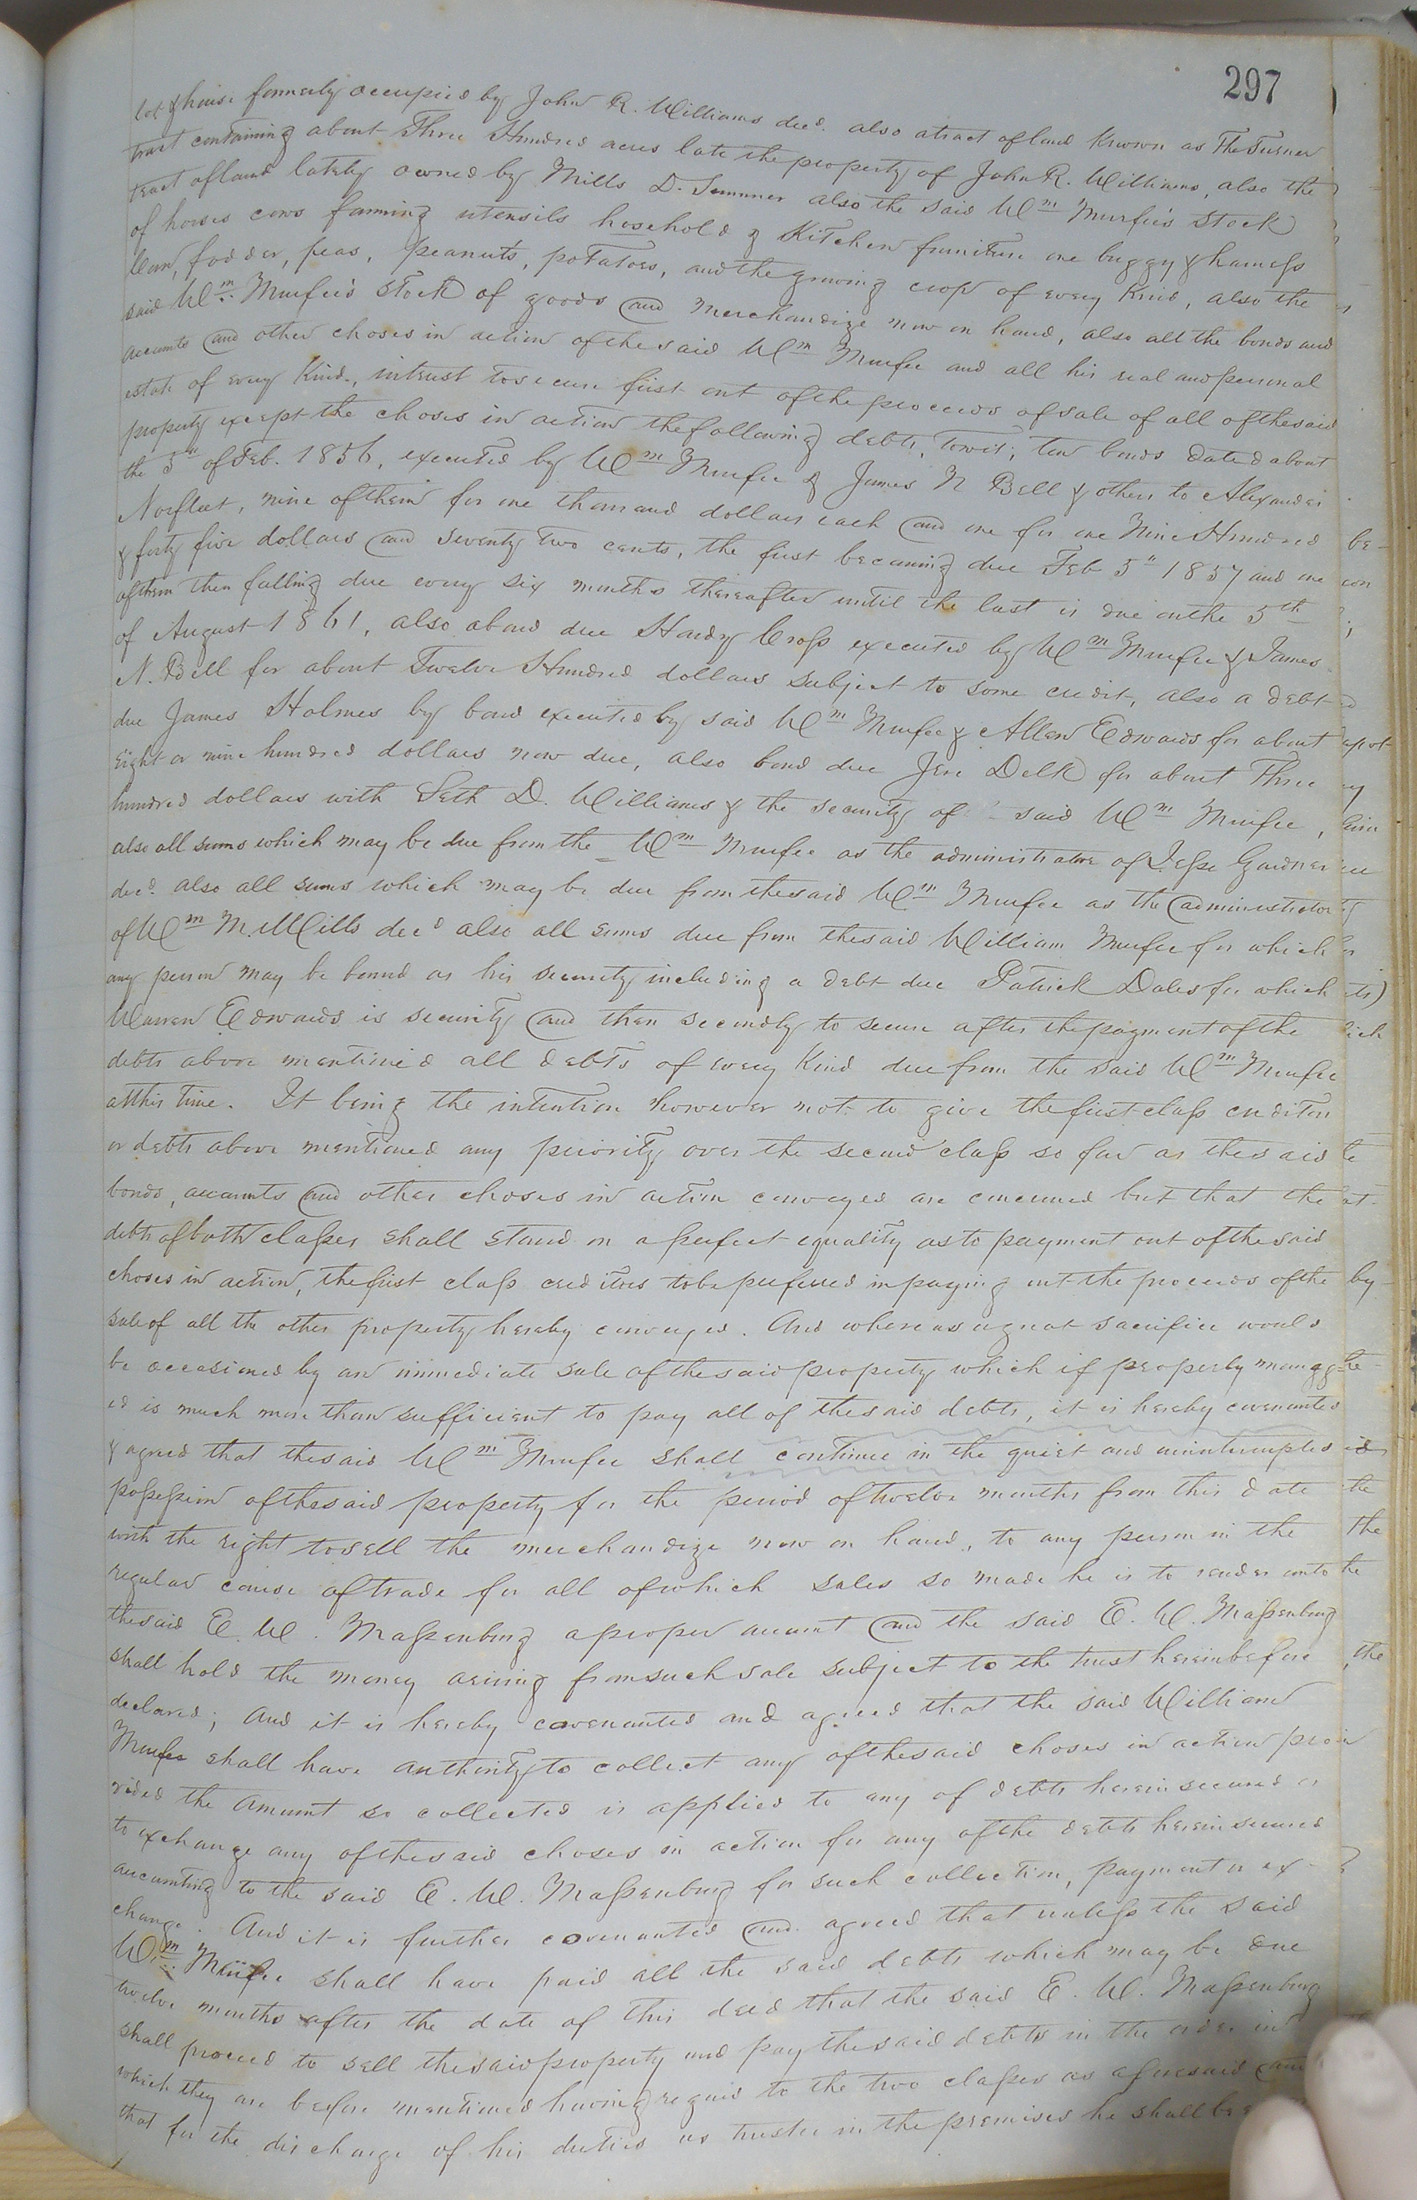 297
lot & house formerly occupied by John R. Williams decd. also a tract of land Known as The Turner
tract containing about Three Hundred acres late the property of John R. Williams, also the
tract of land lately owned by Mills D. Sumner also the said Wm Murfee's stock
of horses cows farming utensils hosehold & Kitchen furniture one buggy & harness
Corn, fodder, peas, peanuts, potatoes, and the growing crop of every Kind, also the
said Wm Murfee's stock of goods and merchandize now on hand, also all the bonds and
accounts and other choses in action of the said Wm Murfee and all his real and personal
estate of every Kind, in trust to secure first out of the proceeds of sale of all of the said
property except the choses in action the following debts, towit; ten bonds dated about
the 5th of Feb. 1856, executed by Wm Murfee & James N Bell & others to Alexander
Norfleet, nine of them for one thousand dollars each and one for one Nine Hundred
& forty five dollars and seventy two cents, the first becoming due Feb 5th 1857 and one
of them then falling due every six months thereafter until the last is due on the 5th
of August 1861, also a bond due Hardy Cross executed by Wm Murfee & James
N. Bell for about Twelve Hundred dollars subject to some credit, also a debt
due James Holmes by bond executed by said Wm Murfee & Allen Edwards for about
eight or nine hundred dollars now due, also bond due Jere Delk for about Three
hundred dollars with Seth D. Williams & the security of said Wm Murfee,
also all sums which may be due from the Wm Murfee as the administrator of Jesse Gardner
decd. also all sums which may be due from the said Wm Murfee as the administrator
of Wm M. Mills decd also all sums due from the said William Murfee for which
any person may be bound as his security including a debt due Patrick Dales for which
Warren Edwards is security and then secondly to secure after the payment of the
debts above mentioned all debts of every Kind due from the said Wm Murfee
at this time. It being the intention however not to give the first class creditors
or debts above mentioned any priority over the second class so far as the said
bonds, accounts and other choses in action conveyed are concerned but that the
debts of both classes shall stand on a perfect equality as to payment out of the said
choses in action, the first class creditors to be preferred in paying out the proceeds of the
sale of all the other property hereby conveyed. And whereas a great sacrifice would
be occasioned by an immediate sale of the said property which if properly manag
ed is much more than sufficient to pay all of the said debts, it is hereby covenanted
& agreed that the said Wm Murfee shall continue in the quiet and uninterrupted
possession of the said property for the period of twelve months from this date
with the right to sell the merchandize now on hand, to any person in the
regular course of trade for all of which sales so made he is to render unto
the said E. W. Massenburg a proper account and the said E. W. Massenburg
shall hold the money arising from such sale subject to the trust hereinbefore
declared; And it is hereby covenanted and agreed that the said William
Murfee shall have authority to collect any of the said choses in action pro
vided the amount so collected is applied to any of debts herein secured or
to exchange any of the said choses in action for any of the debts herein secured
accounting to the said E. W. Massenburg for such collection, payment or ex
change. And it is further covenanted and agreed that unless the said
Wm Murfee shall have paid all the said debts which may be due
twelve months after the date of this deed that the said E. W. Massenburg
shall proceed to sell the said property and pay the said debts in the order in
which they are before mentioned having regard to the two classes as aforesaid and
that for the discharge of his duties as trustee in the premises he shall be